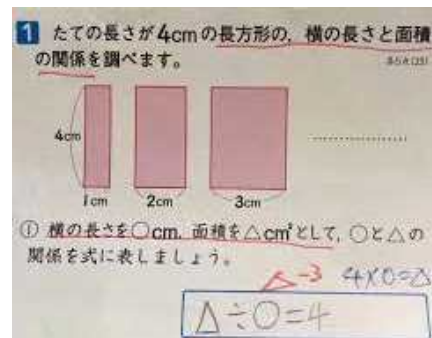 1 たての長さが4cmの長方形の,横の長さと面積
の関係を調べます。
4cm
1cm 2cm 3cm
① 横の長さを○cm,面積を△cm²として,○と△の
関係を式に表しましょう。
△-3 4×○=△
△÷○=4